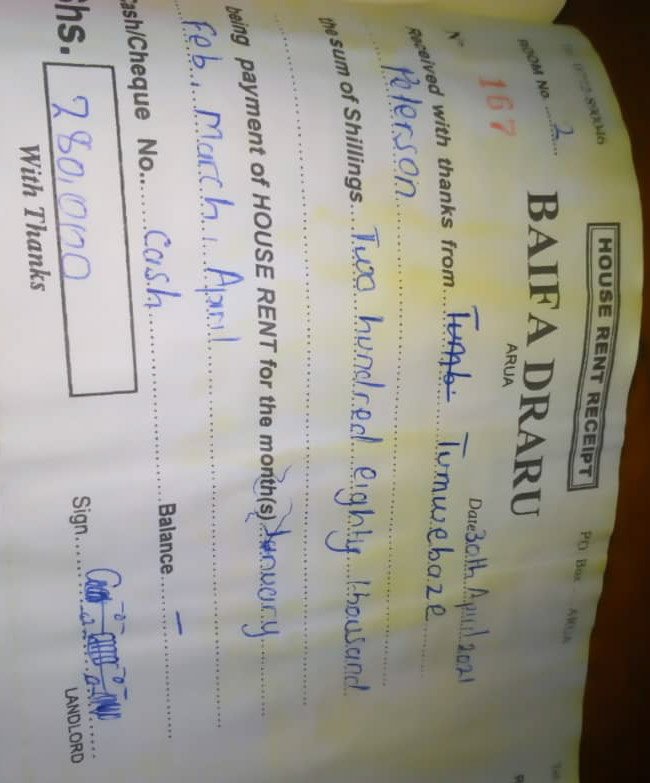 HOUSE RENT RECEIPT
PO Box ARUA
ROOM No. 2
BAIFA DRARU
ARUA
No 167
Date 30th April 2021
Received with thanks from Tumwebaze
Peterson
the sum of Shillings Two hundred eighty thousand
being payment of HOUSE RENT for the month(s) January
Feb, March, April
Cash/Cheque No. Cash Balance –
hs. 280,000
With Thanks
Sign
LANDLORD